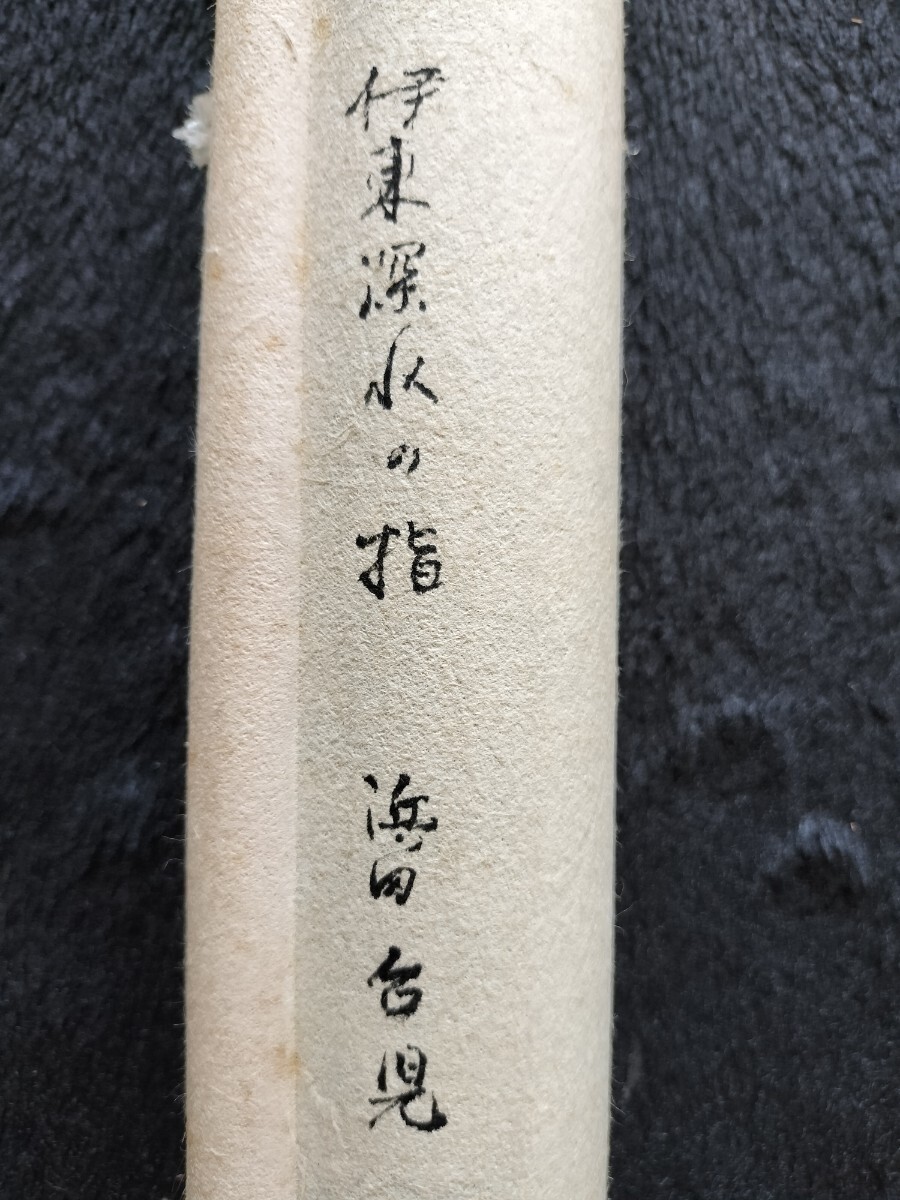 伊東深水の指 浜田台児